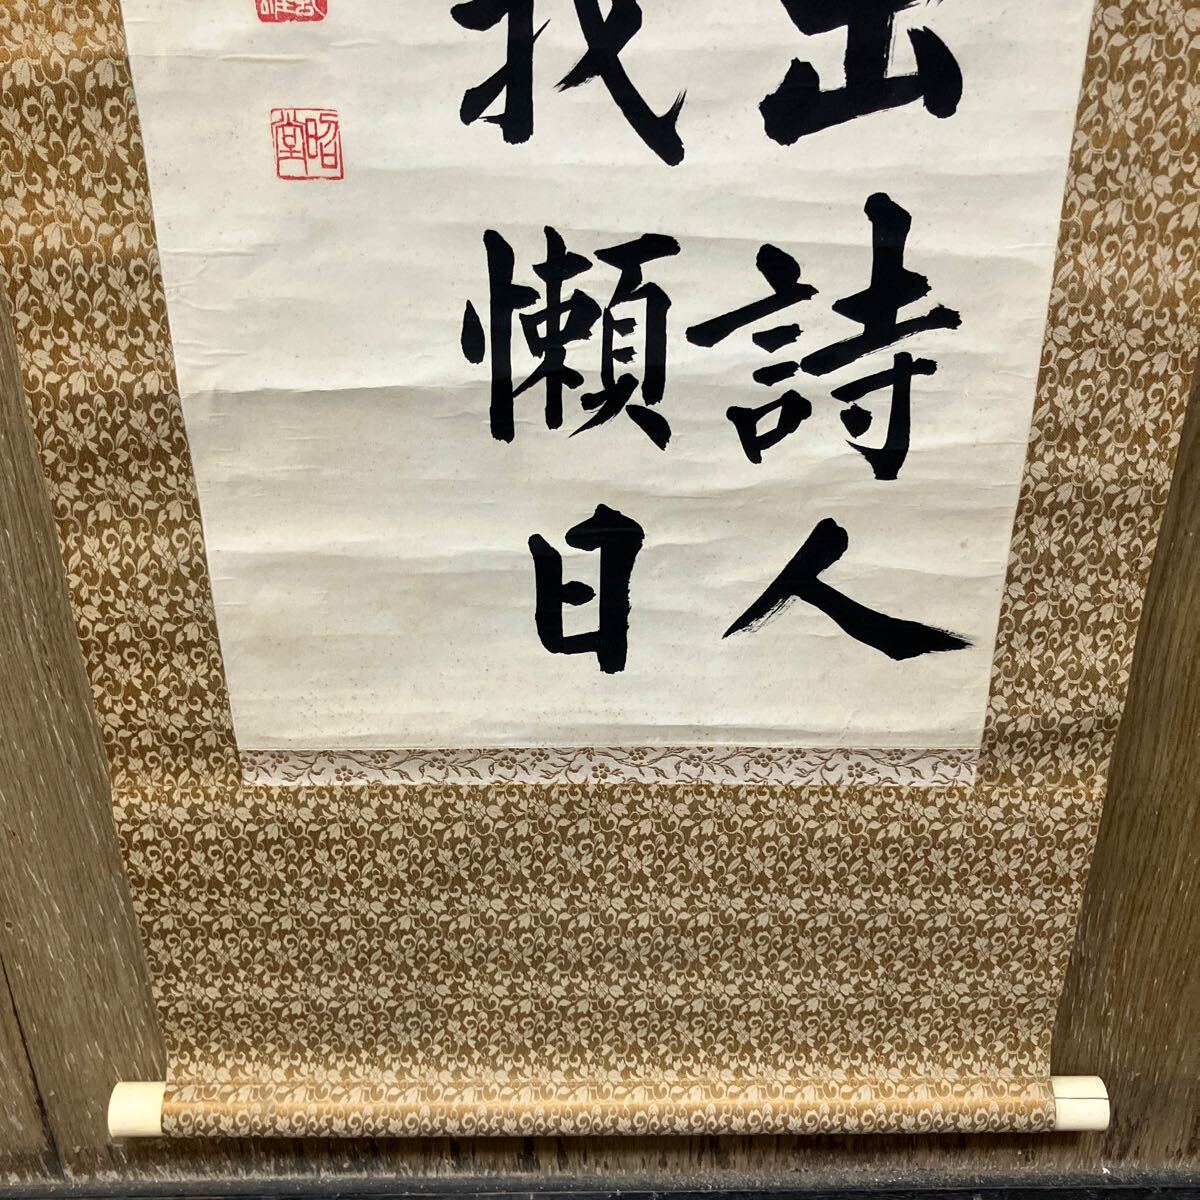 出詩人
我懶日
昭堂